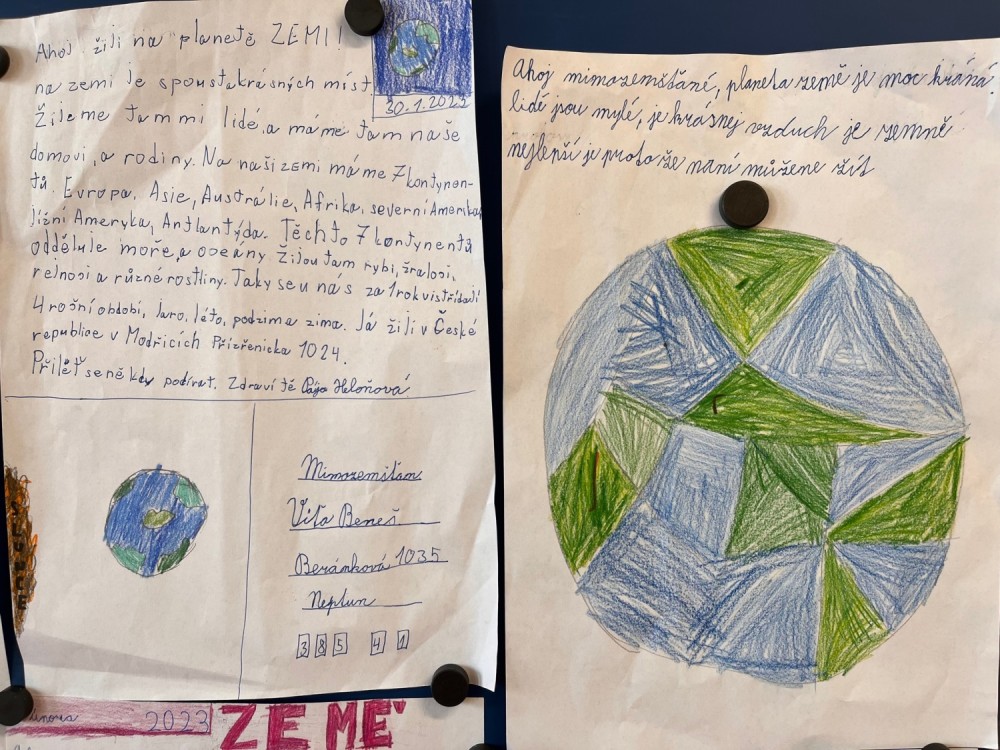 Ahoj žili na planetě ZEMI!
30.1.2023
na zemi je spoustakrásných míst
Žijeme tam mi lidé, a máme tam naše
domovi, a rodiny. Na naší zemi máme 7 kontynen-
tů. Evropa, Asie, Austrálie, Afrika, severní Amerika
Jížní Ameryka, Antlantýda. Těchto 7 kontynentů
odděluje moře, a oceány Žijou tam rybi, žraloci,
rejnoci a různé rostliny. Taky se u nás za 1 rok vistřídají
4 roční období, Jaro, léto, podzim a zima. Já žili v České
republice v Modřicích Přízřenická 1024.
Přileť se někdy podívat. Zdraví tě Heloňová
Mimozemšťan
Víťa Beneš
Beránková 1035
Neptun
385 41
2023
ZEMĚ
Ahoj mimozemšťání, planeta země je moc krásná.
lidé jsou mylé, je krásnej vzduch je zemně
nejlepší je proto že naní můžene žít